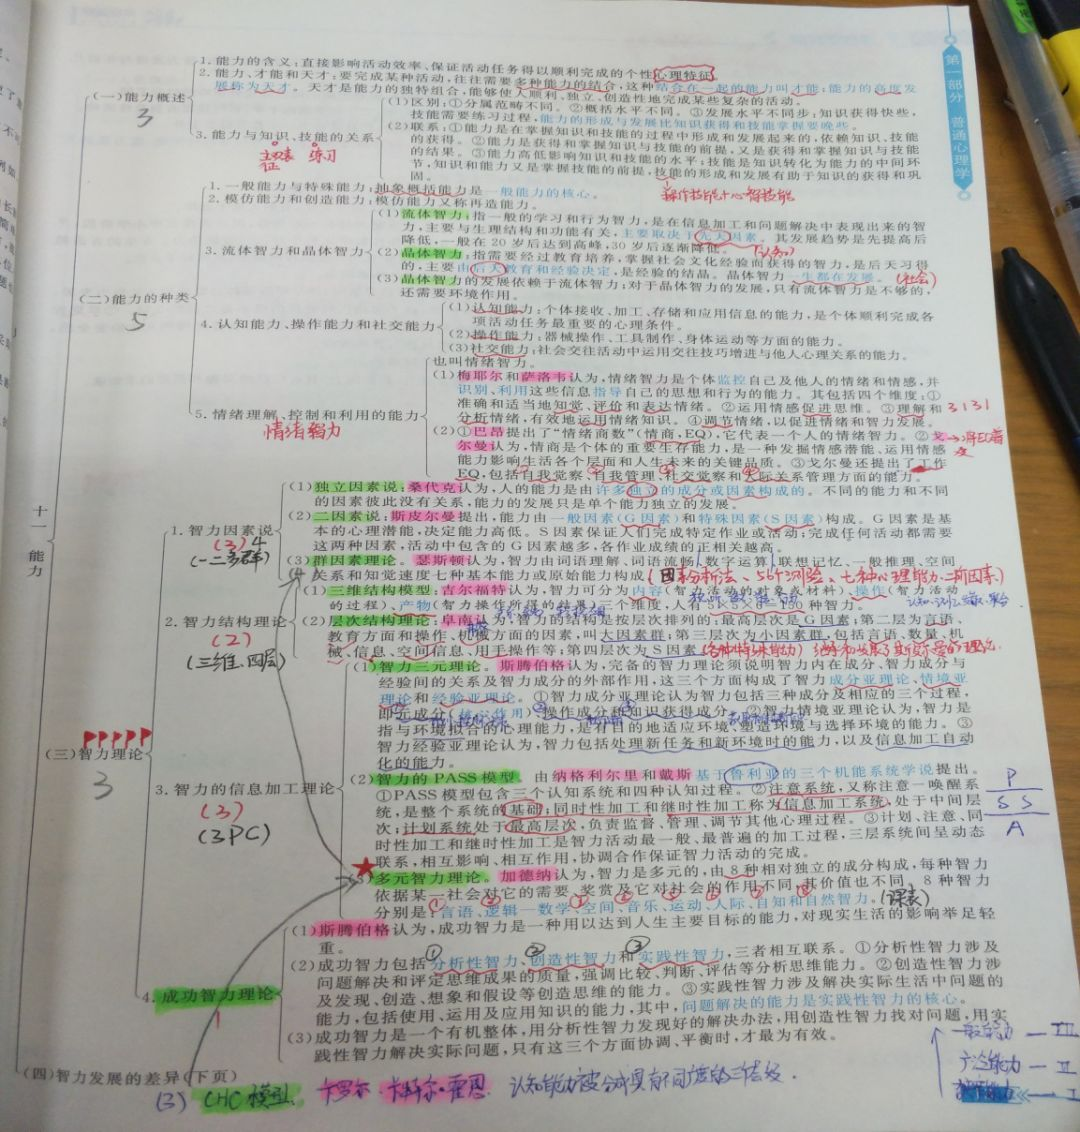 第一部分 普通心理学
十一 能力
(一)能力概述
3
1.能力的含义:直接影响活动效率、保证活动任务得以顺利完成的个性心理特征
2.能力、才能和天才:要完成某种活动,往往需要多种能力的结合,这种结合在一起的能力叫才能;能力的高度发
展称为天才。天才是能力的独特组合,能够使人顺利、独立、创造性地完成某些复杂的活动。
3.能力与知识、技能的关系
练习
(1)区别:①分属范畴不同。②概括水平不同。③发展水平不同步:知识获得快些,
技能需要练习过程,能力的形成与发展比知识获得和技能掌握要晚些。
(2)联系:①能力是在掌握知识和技能的过程中形成和发展起来的,依赖知识、技能
的获得。②能力是获得和掌握知识与技能的前提,又是获得和掌握知识与技能
的结果。③能力高低影响知识和技能的水平;技能是知识转化为能力的中间环
节,知识和能力又是掌握技能的前提,技能的形成和发展有助于知识的获得和巩
固。
操作技能+心智技能
(二)能力的种类
5
1.一般能力与特殊能力:抽象概括能力是一般能力的核心。
2.模仿能力和创造能力:模仿能力又称再造能力。
3.流体智力和晶体智力
(1)流体智力:指一般的学习和行为智力,是在信息加工和问题解决中表现出来的智
力,主要与生理结构和功能有关,主要取决于先天因素。其发展趋势是先提高后
降低,一般在20岁后达到高峰,30岁后逐渐降低。
(认知)
(2)晶体智力:指需要经过教育培养,掌握社会文化经验而获得的智力,是后天习得
的,主要由后天教育和经验决定,是经验的结晶。晶体智力一生都在发展。
(社会)
(3)晶体智力的发展依赖于流体智力;对于晶体智力的发展,只有流体智力是不够的,
还需要环境作用。
4.认知能力、操作能力和社交能力
(1)认知能力:个体接收、加工、存储和应用信息的能力,是个体顺利完成各
项活动任务最重要的心理条件。
(2)操作能力:器械操作、工具制作、身体运动等方面的能力。
(3)社交能力:社会交往活动中运用交往技巧增进与他人心理关系的能力。
5.情绪理解、控制和利用的能力
情绪智力
也叫情绪智力。
(1)梅耶尔和萨洛韦认为,情绪智力是个体监控自己及他人的情绪和情感,并
识别、利用这些信息指导自己的思想和行为的能力。其包括四个维度:①
准确和适当地知觉、评价和表达情绪。②运用情感促进思维。③理解和
分析情绪,有效地运用情绪知识。④调节情绪,以促进情绪和智力发展。
(2)①巴昂提出了“情绪商数”(情商,EQ),它代表一个人的情绪智力。②戈
尔曼认为,情商是个体的重要生存能力,是一种发掘情感潜能、运用情感
能力影响生活各个层面和人生未来的关键品质。③戈尔曼还提出了工作
EQ,包括自我觉察、自我管理、社交觉察和人际关系管理方面的能力。
(三)智力理论
3
1.智力因素说
(3)4
(一二多群)
(1)独立因素说:桑代克认为,人的能力是由许多独立的成分或因素构成的。不同的能力和不同
的因素彼此没有关系,能力的发展只是单个能力独立的发展。
(2)二因素说:斯皮尔曼提出,能力由一般因素(G因素)和特殊因素(S因素)构成。G因素是基
本的心理潜能,决定能力高低。S因素保证人们完成特定作业或活动;完成任何活动都需要
这两种因素,活动中包含的G因素越多,各作业成绩的正相关越高。
(3)群因素理论:瑟斯顿认为,智力由词语理解、词语流畅、数字运算、联想记忆、一般推理、空间
关系和知觉速度七种基本能力或原始能力构成
(因素分析法、56个测验、七种心理能力、二阶因素)
2.智力结构理论
(2)
(三维、四层)
(1)三维结构模型:吉尔福特认为,智力可分为内容(智力活动的对象或材料)、操作(智力活动
的过程)、产物(智力操作所得的结果)三个维度,人有5×5×6=150种智力。
(2)层次结构理论:阜南认为,智力的结构是按层次排列的:最高层次是G因素;第二层为言语、
教育方面和操作、机械方面的因素,叫大因素群;第三层次为小因素群,包括言语、数量、机
械、信息、空间信息、用手操作等;第四层次为S因素
(各种特殊能力)
3.智力的信息加工理论
(3)
(3PC)
(1)智力三元理论。斯腾伯格认为,完备的智力理论须说明智力内在成分、智力成分与
经验间的关系及智力成分的外部作用,这三个方面构成了智力成分亚理论、情境亚
理论和经验亚理论。①智力成分亚理论认为智力包括三种成分及相应的三个过程,
即元成分(核心作用)、操作成分和知识获得成分。②智力情境亚理论认为,智力是
指与环境拟合的心理能力,是有目的地适应环境、塑造环境与选择环境的能力。③
智力经验亚理论认为,智力包括处理新任务和新环境时的能力,以及信息加工自动
化的能力。
(2)智力的PASS模型。由纳格利尔里和戴斯基于鲁利亚的三个机能系统学说提出。
①PASS模型包含三个认知系统和四种认知过程。②注意系统,又称注意—唤醒系
统,是整个系统的基础;同时性加工和继时性加工称为信息加工系统,处于中间层
次;计划系统处于最高层次,负责监督、管理、调节其他心理过程。③计划、注意、同
时性加工和继时性加工是智力活动最一般、最普遍的加工过程,三层系统间呈动态
联系,相互影响、相互作用,协调合作保证智力活动的完成。
P
S S
A
(3)多元智力理论。加德纳认为,智力是多元的,由8种相对独立的成分构成,每种智力
依据某一社会对它的需要、奖赏及它对社会的作用不同,其价值也不同。8种智力
分别是:言语、逻辑—数学、空间、音乐、运动、人际、自知和自然智力。
(课表)
4.成功智力理论
(1)斯腾伯格认为,成功智力是一种用以达到人生主要目标的能力,对现实生活的影响举足轻
重。
(2)成功智力包括分析性智力、创造性智力和实践性智力,三者相互联系。①分析性智力涉及
问题解决和评定思维成果的质量,强调比较、判断、评估等分析思维能力。②创造性智力涉
及发现、创造、想象和假设等创造思维的能力。③实践性智力涉及解决实际生活中问题的
能力,包括使用、运用及应用知识的能力,其中,问题解决的能力是实践性智力的核心。
(3)成功智力是一个有机整体,用分析性智力发现好的解决办法,用创造性智力找对问题,用实
践性智力解决实际问题,只有这三个方面协调、平衡时,才最为有效。
(四)智力发展的差异(下页)
(3) CHC模型、卡罗尔、卡特尔·霍恩 认知能力被分成具有不同广度的三层级.
一般能力 — III
广泛能力 — II